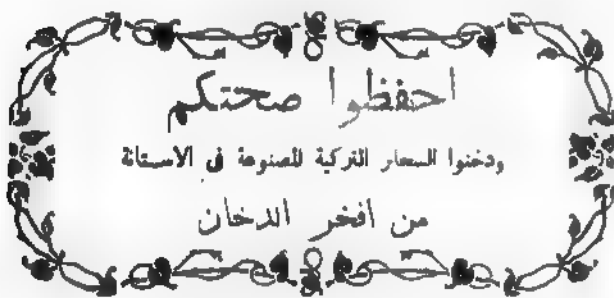 احفظوا صحتكم
ودخنوا السعار التركية المصنوعة في الاستانة
من افخر الدخان